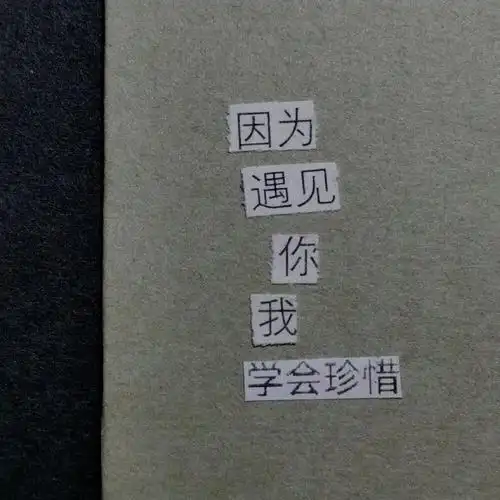 因为
遇见
你
我
学会珍惜